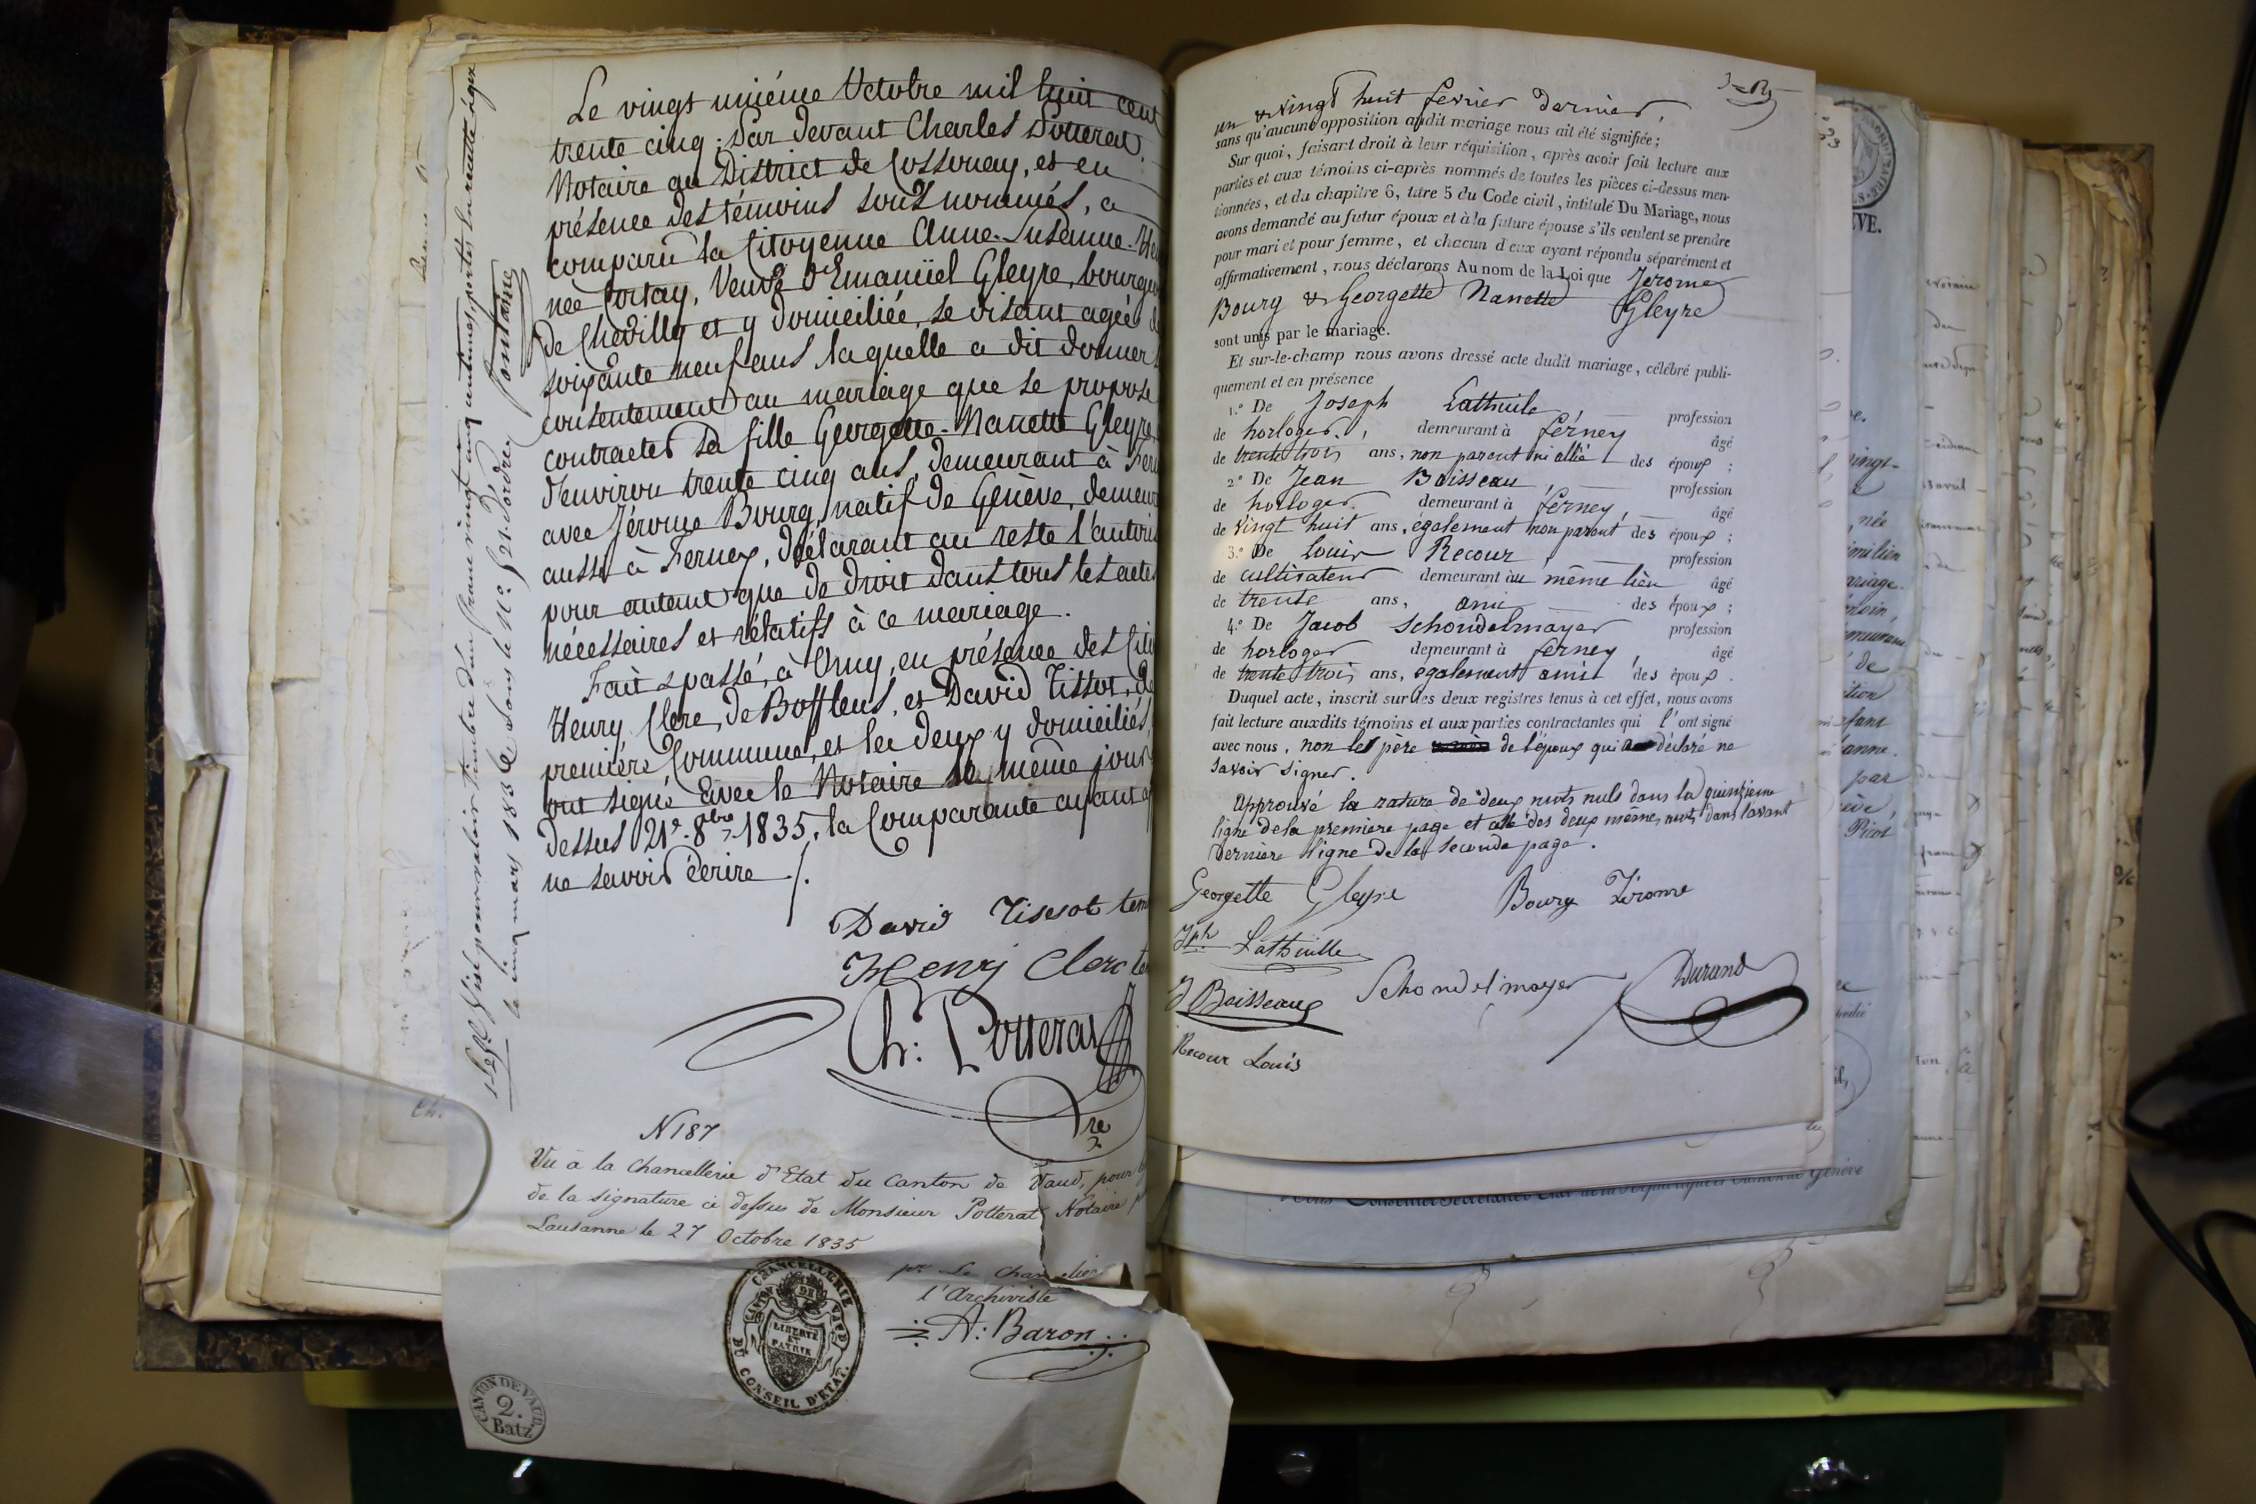 Le vingt unième Octobre mil huit cent
trente cinq. Par devant Charles Potterat,
Notaire au District de Cossonay, et en
présence des témoins sous nommés, a
comparu la Citoyenne Anne-Susanne-
née Cortay, Veuve d'Emanüel Gleyre, bourgeois
de Chevilly et y domiciliée, se disant agée de
soixante neuf ans laquelle a dit donner
consentement au mariage que se propose
contracter sa fille Georgette-Nanette Gleyre,
d'environ trente cinq ans, demeurant à
avec Jérome Bourg, natif de Genève,
aussi à Ferney, déclarant au reste l'autoriser
pour autant que de droit dans tous les actes
nécessaires et rélatifs à ce mariage.
Fait & passé, à Orny, en présence des
Henry Clerc, de Bofflens, et David Tissot, de
première Commune, et les deux y domiciliés,
ont signé avec le Notaire le même jour
dessus 21e. 8bre. 1835, la Comparante ayant
ne savoir écrire ./.
David Tissot
Henri Clerc
Ch: Potterat
Nre
N 187
Vu à la Chancellerie d'Etat du Canton de Vaud, pour
de la signature ci dessus de Monsieur Potterat Notaire
Lausanne le 27 Octobre 1835
pr. Le Chancelier
l'Archiviste
A: Baron
CHANCELLERIE DU CONSEIL D'ETAT.
CANTON DE VAUD
LIBERTÉ
ET
PATRIE
CANTON DE VAUD
2.
Batz
pour valoir timbre d'un franc vingt cinq centimes, porté en recette
le cinq mars 1836 sous le No.
Fontaine
un & vingt huit fevrier dernier,
sans qu'aucune opposition audit mariage nous ait été signifiée;
Sur quoi, faisant droit à leur réquisition, après avoir fait lecture aux
parties et aux témoins ci-après nommés de toutes les pièces ci-dessus men-
tionnées, et du chapitre 6, titre 5 du Code civil, intitulé Du Mariage, nous
avons demandé au futur époux et à la future épouse s'ils veulent se prendre
pour mari et pour femme, et chacun d'eux ayant répondu séparément et
affirmativement, nous déclarons Au nom de la Loi que Jerome
Bourg & Georgette Nanette Gleyre
sont unis par le mariage.
Et sur-le-champ nous avons dressé acte dudit mariage, célébré publi-
quement et en présence
1.° De Joseph Lathuile, profession
de horloger, demeurant à ferney âgé
de trente trois ans, non parent ni allié des époux;
2.° De Jean Boisseau, profession
de horloger demeurant à ferney, âgé
de vingt huit ans, également non parent des époux;
3.° De Louis Recour, profession
de cultivateur demeurant au même lieu âgé
de trente ans, ami des époux;
4.° De Jacob Schondelmayer profession
de horloger demeurant à ferney, âgé
de trente trois ans, également ami des époux.
Duquel acte, inscrit sur les deux registres tenus à cet effet, nous avons
fait lecture auxdits témoins et aux parties contractantes qui l'ont signé
avec nous, non le père de l'époux qui a déclaré ne
savoir signer.
Approuvé la rature de deux mots nuls dans la quinzieme
ligne de la premiere page et celle des deux mêmes mots dans l'avant
derniere ligne de la seconde page.
Georgette Gleyre Bourg Jérome
Jph Lathuille
J Boisseau Schondelmayer Durand
Recour Louis